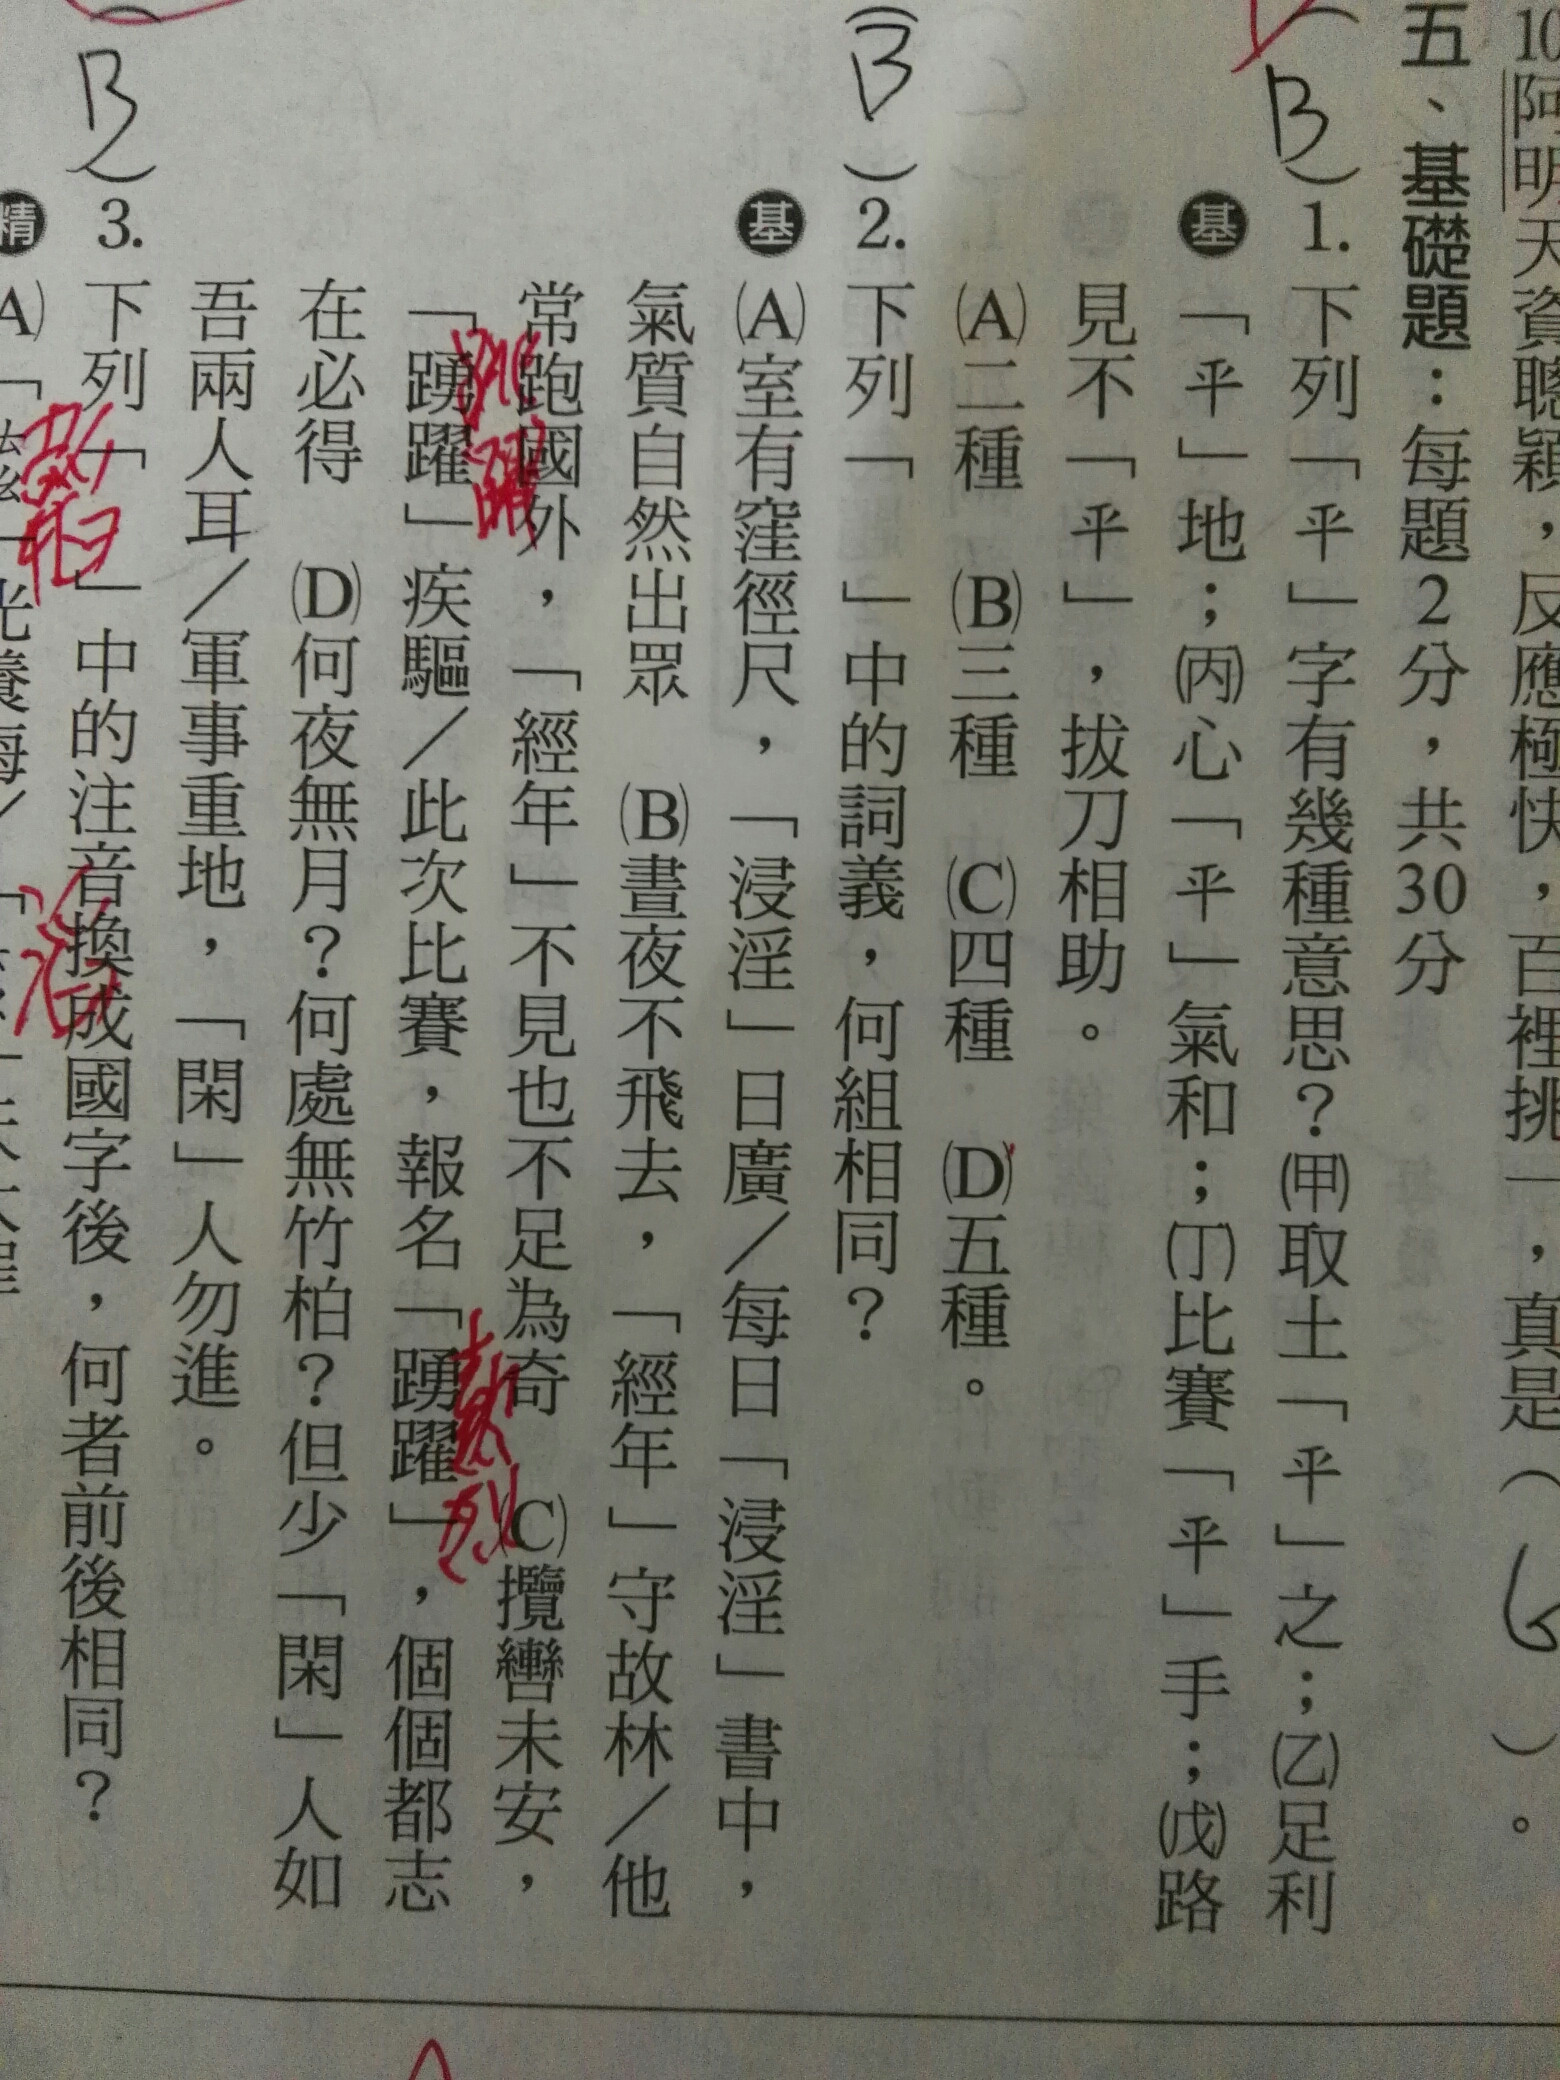 10阿明天資聰穎，反應極快，百裡挑一，真是（
）。
五、基礎題：每題2分，共30分
（B）1.下列「平」字有幾種意思？㈙取土「平」之；㈚足利
基「平」地；㈛心「平」氣和；㈜比賽「平」手；㈝路
見不「平」，拔刀相助。
(A)二種 (B)三種 (C)四種 (D)五種。
（B）2.下列「 」中的詞義，何組相同？
基(A)室有窪徑尺，「浸淫」日廣／每日「浸淫」書中，
氣質自然出眾 (B)晝夜不飛去，「經年」守故林／他
常跑國外，「經年」不見也不足為奇 (C)攬轡未安，
跳躍
「踴躍」疾驅／此次比賽，報名「踴躍」，個個都志
熱烈
在必得 (D)何夜無月？何處無竹柏？但少「閑」人如
吾兩人耳／軍事重地，「閑」人勿進。
（B）3.下列「 」中的注音換成國字後，何者前後相同？
精(A)「ㄊㄠ」光養晦／